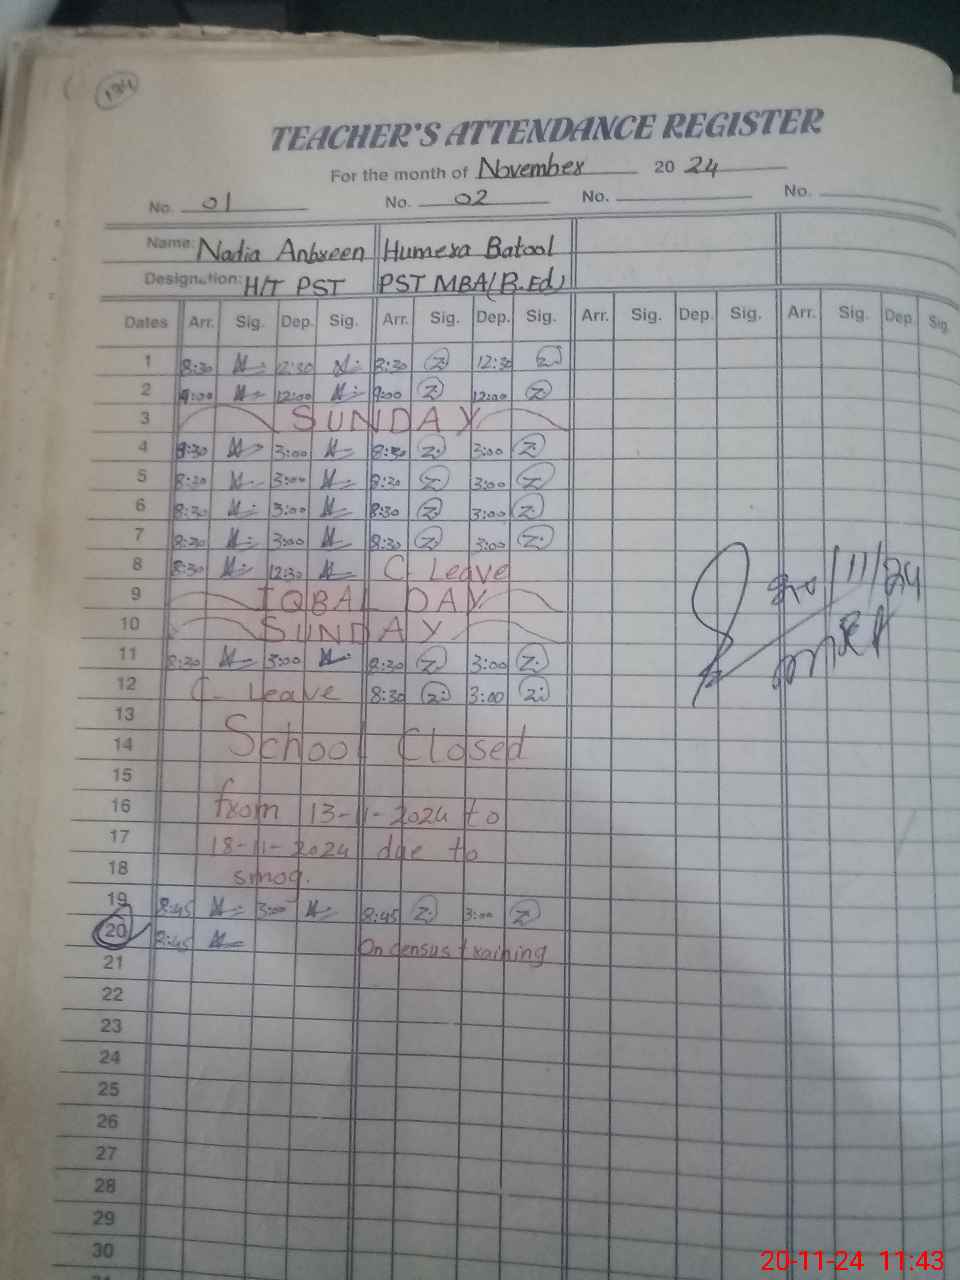 134
TEACHER'S ATTENDANCE REGISTER
For the month of November 2024
No. 01 No. 02 No. No.
Name: Nadia Anbreen Humera Batool
Designation: H/T PST PST MBA(B.Ed)
Dates Arr. Sig. Dep. Sig. Arr. Sig. Dep. Sig. Arr. Sig. Dep. Sig. Arr. Sig. Dep. Sig.
1 8:30 12:30 8:30 12:30
2 9:00 12:00 9:00 12:00
3 SUNDAY
4 8:30 3:00 8:30 3:00
5 8:30 3:00 8:30 3:00
6 8:30 3:00 8:30 3:00
7 8:30 3:00 8:30 3:00
8 8:30 12:30 C-Leave
9 IQBAL DAY
10 SUNDAY
11 8:30 3:00 8:30 3:00
12 C-Leave 8:30 3:00
13
14 School Closed
15
16 from 13-11-2024 to
17 18-11-2024 due to
18 smog.
19 8:45 3:00 8:45 3:00
20 8:45 On census training
21
22
23
24
25
26
27
28
29
30
20/11/24
20-11-24 11:43